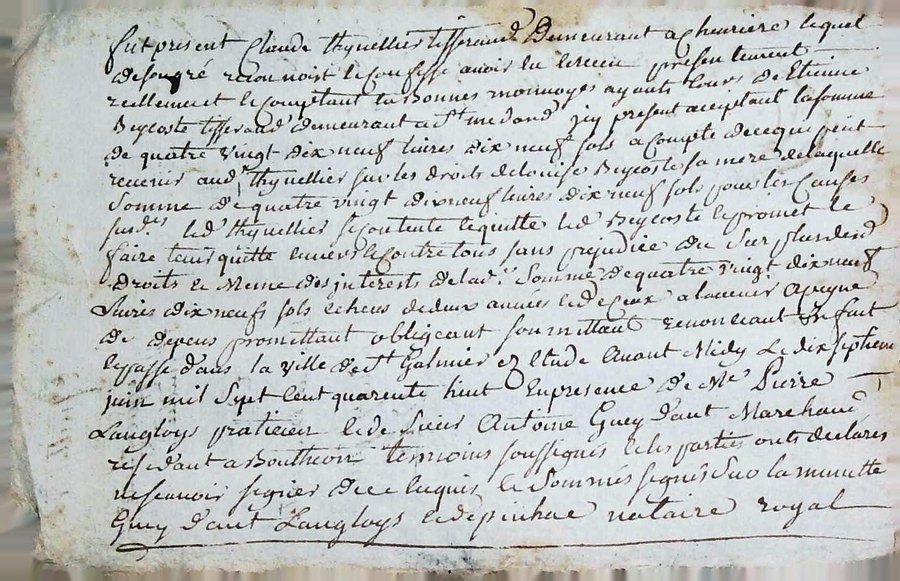 fut present Claude thynellier tisserand Demeurant a cheuriere lequel
de son gré reconnoist & confesse auoir eu & receu presentement
reellement & comptant en Bonnes monnoyes ayants cours de Etienne
Beycoste tisserand demeurant a St medard icy present acceptant la somme
de quatre vingt dix neuf liures dix neuf sols a compte de ce qui peut
reuenir aud. thynellier sur les droits de Beycoste sa mere de laquelle
somme de quatre vingt dix neuf liures dix neuf sols pour les causes
susd. led. thynellier se contente & quitte led. Beycoste & promet le
faire tenir quitte enuers & contre tous sans prejudice du surplus desd.
droits & meme des interets de lad. somme de quatre vingt dix neuf
liures dix neufs sols echeus de deux années & de ceux a lauenir a peyne
de depens promettant obligeant soumettant renonceant fait
& passé dans la ville de St Galmier etude auant Midy Le dix septieme
juin mil sept cent quarente huit En presence de Me Pierre
Langloys praticien & de sieur Antoine Guey d'aut Marchand
residant a Boutheon temoins soussignés & les parties ont declarés
ne scauoir signer de ce enquis & sommés signés sur la minutte
Guey d'aut Langloys & depinhac notaire royal